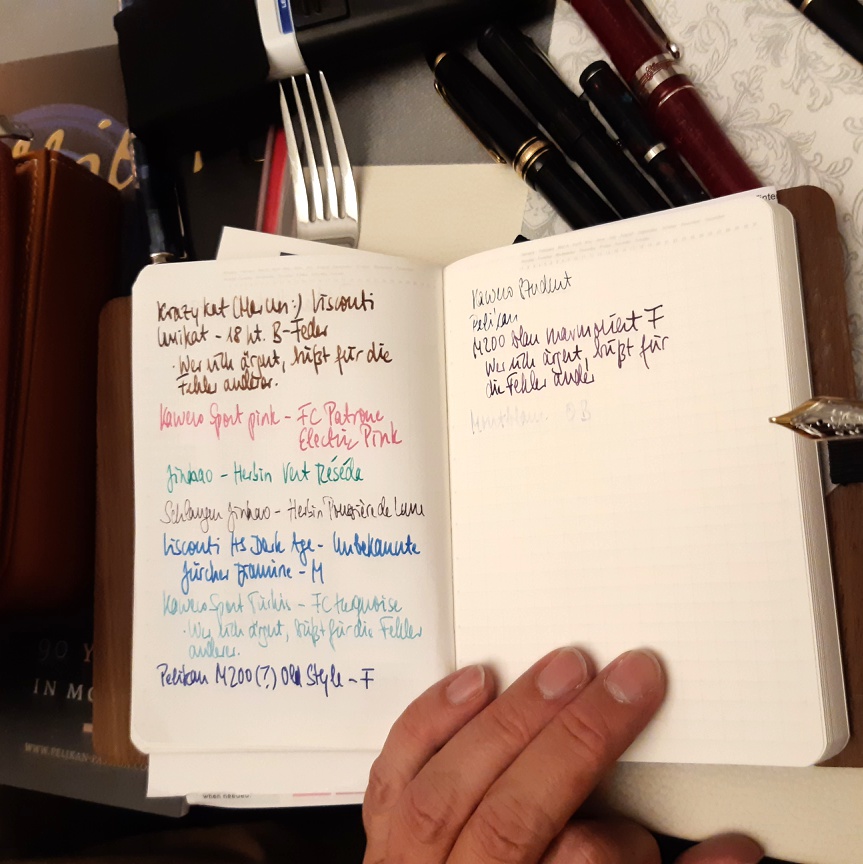 Krazy Kat (Marcun:) Visconti
Unikat - 18 kt. B-Feder
· Wer sich ärgert, büßt für die
Fehler anderer.
Kaweco Sport pink - FC Patrone
Electric Pink
Jinhao - Herbin Vert Réséda
Schlangen Jinhao - Herbin Poussière de Lune
Visconti HS Dark Age - Unbekannte
- M
Kaweco Sport Türkis - FC turquoise
· Wer sich ärgert, büßt für die Fehler
anderer.
Pelikan M200 (?) Old Style - F
Kaweco Student
Pelikan
M200 blau marmoriert F
Wer sich ärgert, büßt für
die Fehler ander
Montblanc BB
90 Y
IN MO
WWW.PELIKAN